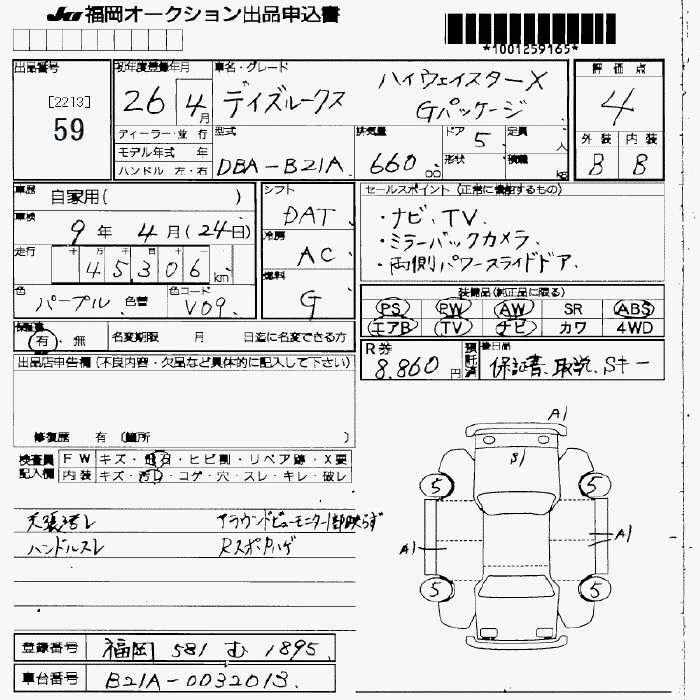 JU 福岡オークション出品申込書
*1001259165*
出品番号
[2213]
59
初年度登録年月
26 4月
車名・グレード
デイズルークス ハイウェイスターX
Gパッケージ
評価点
4
外装 内装
B B
ディーラー・並行
モデル年式 年
ハンドル 左・右
型式
DBA-B21A
排気量
660 cc
ドア 5
形状
定員 人
積載 kg
車歴
自家用( )
車検
9年 4月(24日)
走行
十 万 千 百 十 一
45306 km
色
パープル 色替
色コード
V09
シフト
DAT
冷房
AC
燃料
G
セールスポイント(正常に機能するもの)
・ナビ、TV、
・ミラーバックカメラ、
・両側パワースライドドア、
装備品(純正品に限る)
PS PW AW SR ABS
エアB TV ナビ カワ 4WD
保証書
有・無
名変期限 月 日迄に名変できる方
R券
8,860円
預託済
後日品
保証書、取説、Sキー
出品店申告欄(不良内容・欠品など具体的に記入して下さい)
修復歴 有(箇所 )
検査員記入欄
FW キズ・飛石・ヒビ割・リペア跡・X要
内装 キズ・汚れ・コゲ・穴・スレ・キレ・破レ
天張汚レ アラウンドビューモニター1部映らず
ハンドルスレ RスポAハゲ
A1
B1
5 5
A1 A1
5 5
登録番号 福岡 581 む 1895
車台番号 B21A-0032013